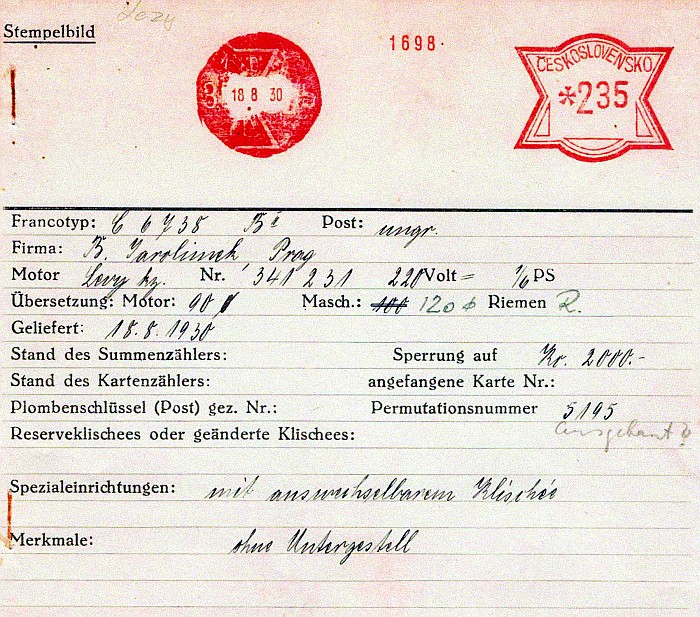 Stempelbild
1698
ČESKOSLOVENSKO
18 8 30
*235
Francotyp: C 6738 Post: ungr.
Firma: B. Jarolimek, Prag
Motor Levy Nr. 341231 220 Volt = 1/6 PS
Übersetzung: Motor: 90 Masch.: 100 120 ø Riemen R.
Geliefert: 18.8.1930
Stand des Summenzählers: Sperrung auf Kc. 2000.-
Stand des Kartenzählers: angefangene Karte Nr.:
Plombenschlüssel (Post) gez. Nr.: Permutationsnummer 5195
Ausgebaut
Reserveklischees oder geänderte Klischees:
Spezialeinrichtungen: mit auswechselbarem Klischée
Merkmale: ohne Untergestell